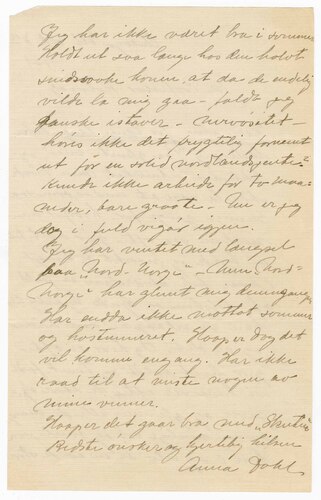 Jeg har ikke været bra i sommer
holdt ut saa lenge hos den halvt
sindssvake konen at da de endelig
vilde la mig gaa – faldt jeg
ganske istaver – nervøsitet –
høres ikke det frygtelig fornemt
ut för en solid nordlandsjente"
Kunde ikke arbeide for to maa-
neder, bare graate. – Nu er jeg
dog i fuld vigør igjen.
Jeg har ventet med længsel
paa „Nord-Norge" – Men Nord-
Norge har glemt mig denne gangen
Har endda ikke mottat sommer
og høstnumret. Haaper dog det
vil komme engang. Har ikke
raad til at miste nogen av
mine venner.
Haaper det gaar bra med
Bedste ønsker og hjertelig hilsen
Anna Dahl